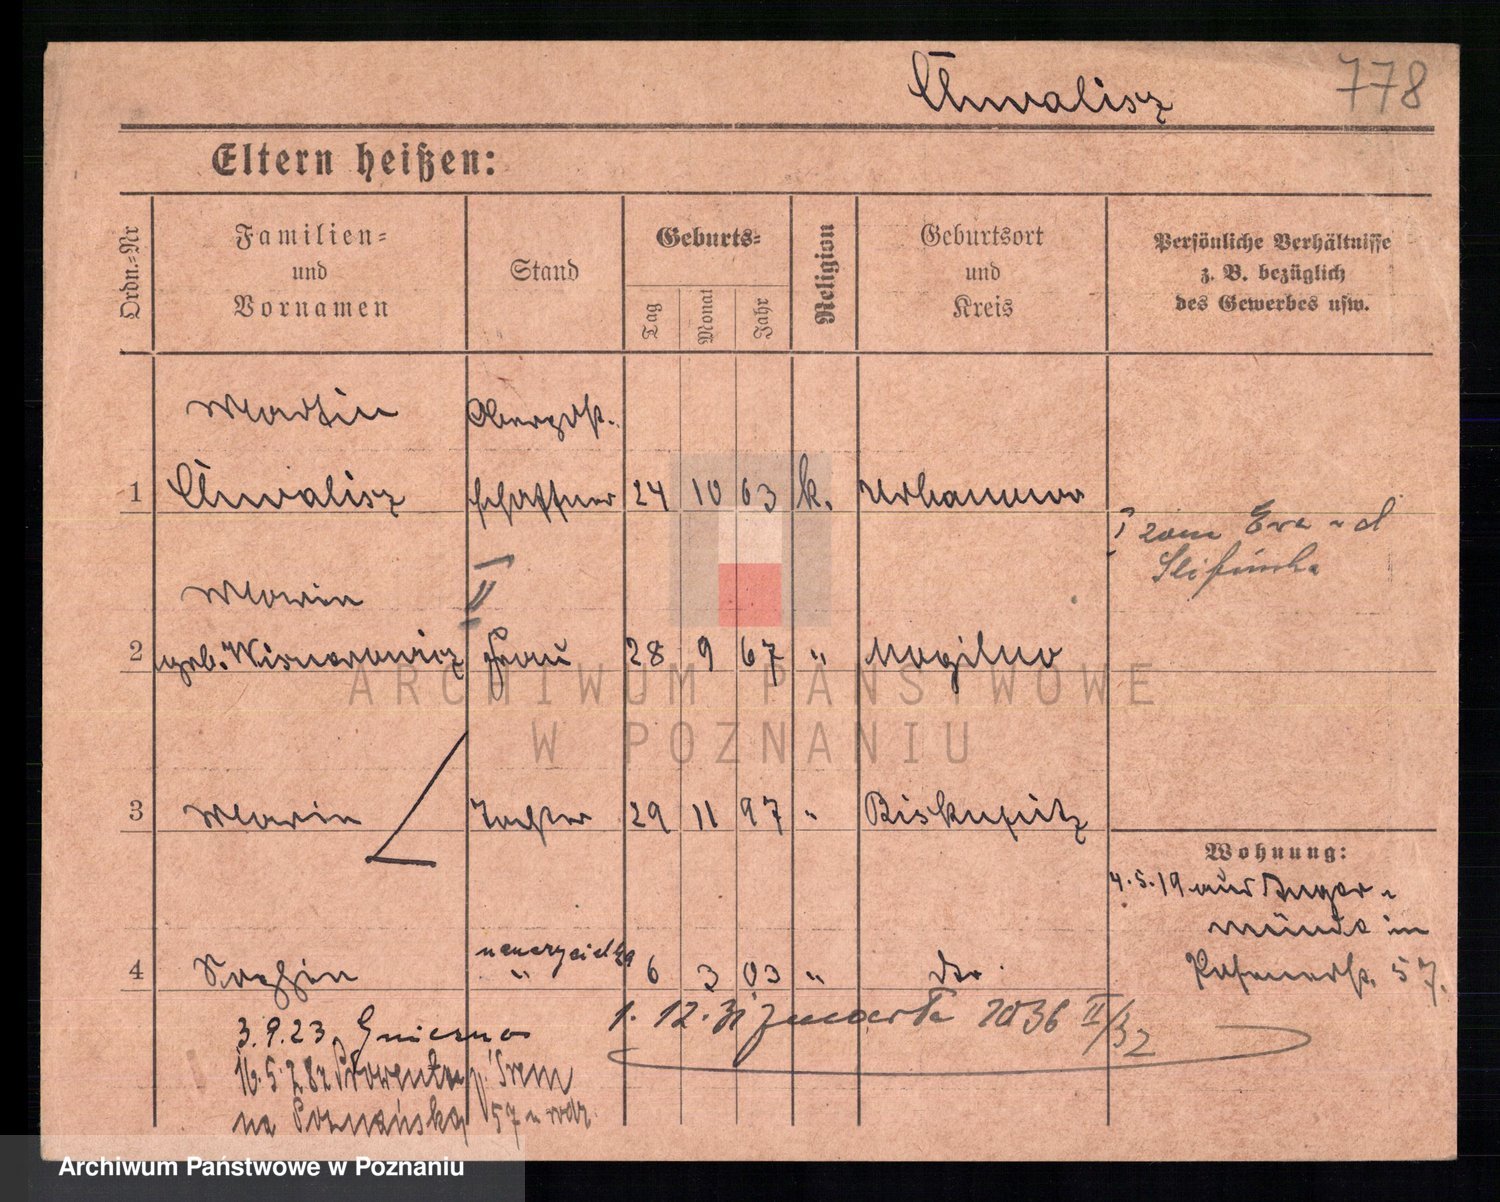 Chwalisz 778
Eltern heißen:
Ordn.=Nr
Familien=
und
Vornamen
Stand
Geburts=
Tag
Monat
Jahr
Religion
Geburtsort
und
Kreis
Persönliche Verhältnisse
z. B. bezüglich
des Gewerbes usw.
Martin Oberpost.
1 Chwalisz schaffner 24 10 63 k. Urbanowo
Maria II
2 geb. Frau 28 9 67 " Mogilno
3 Maria Tochter 29 11 97 " Biskupitz
Wohnung:
4.5.19 aus Anger-
münde in
57.
4 Sophie " 6 3 03 "
3.9.23. Gniezno
16.5.28 Śrem
na Poznańska 57
1.12.31 zmarł 2036 II/32
ARCHIWUM PAŃSTWOWE
W POZNANIU
Archiwum Państwowe w Poznaniu